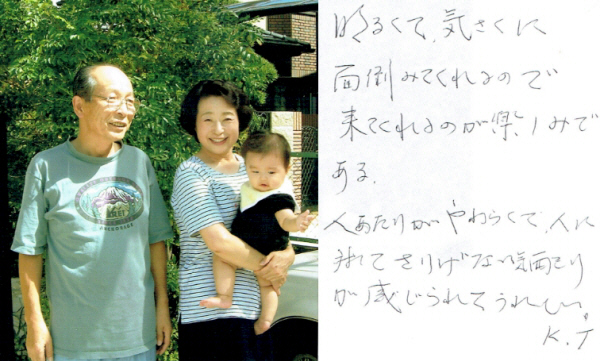 明るくて、気さくに
面倒みてくれるので
来てくれるのが楽しみで
ある。
人あたりがやわらくて、人に
対してさりげない気配り
が感じられてうれしい。
K.T